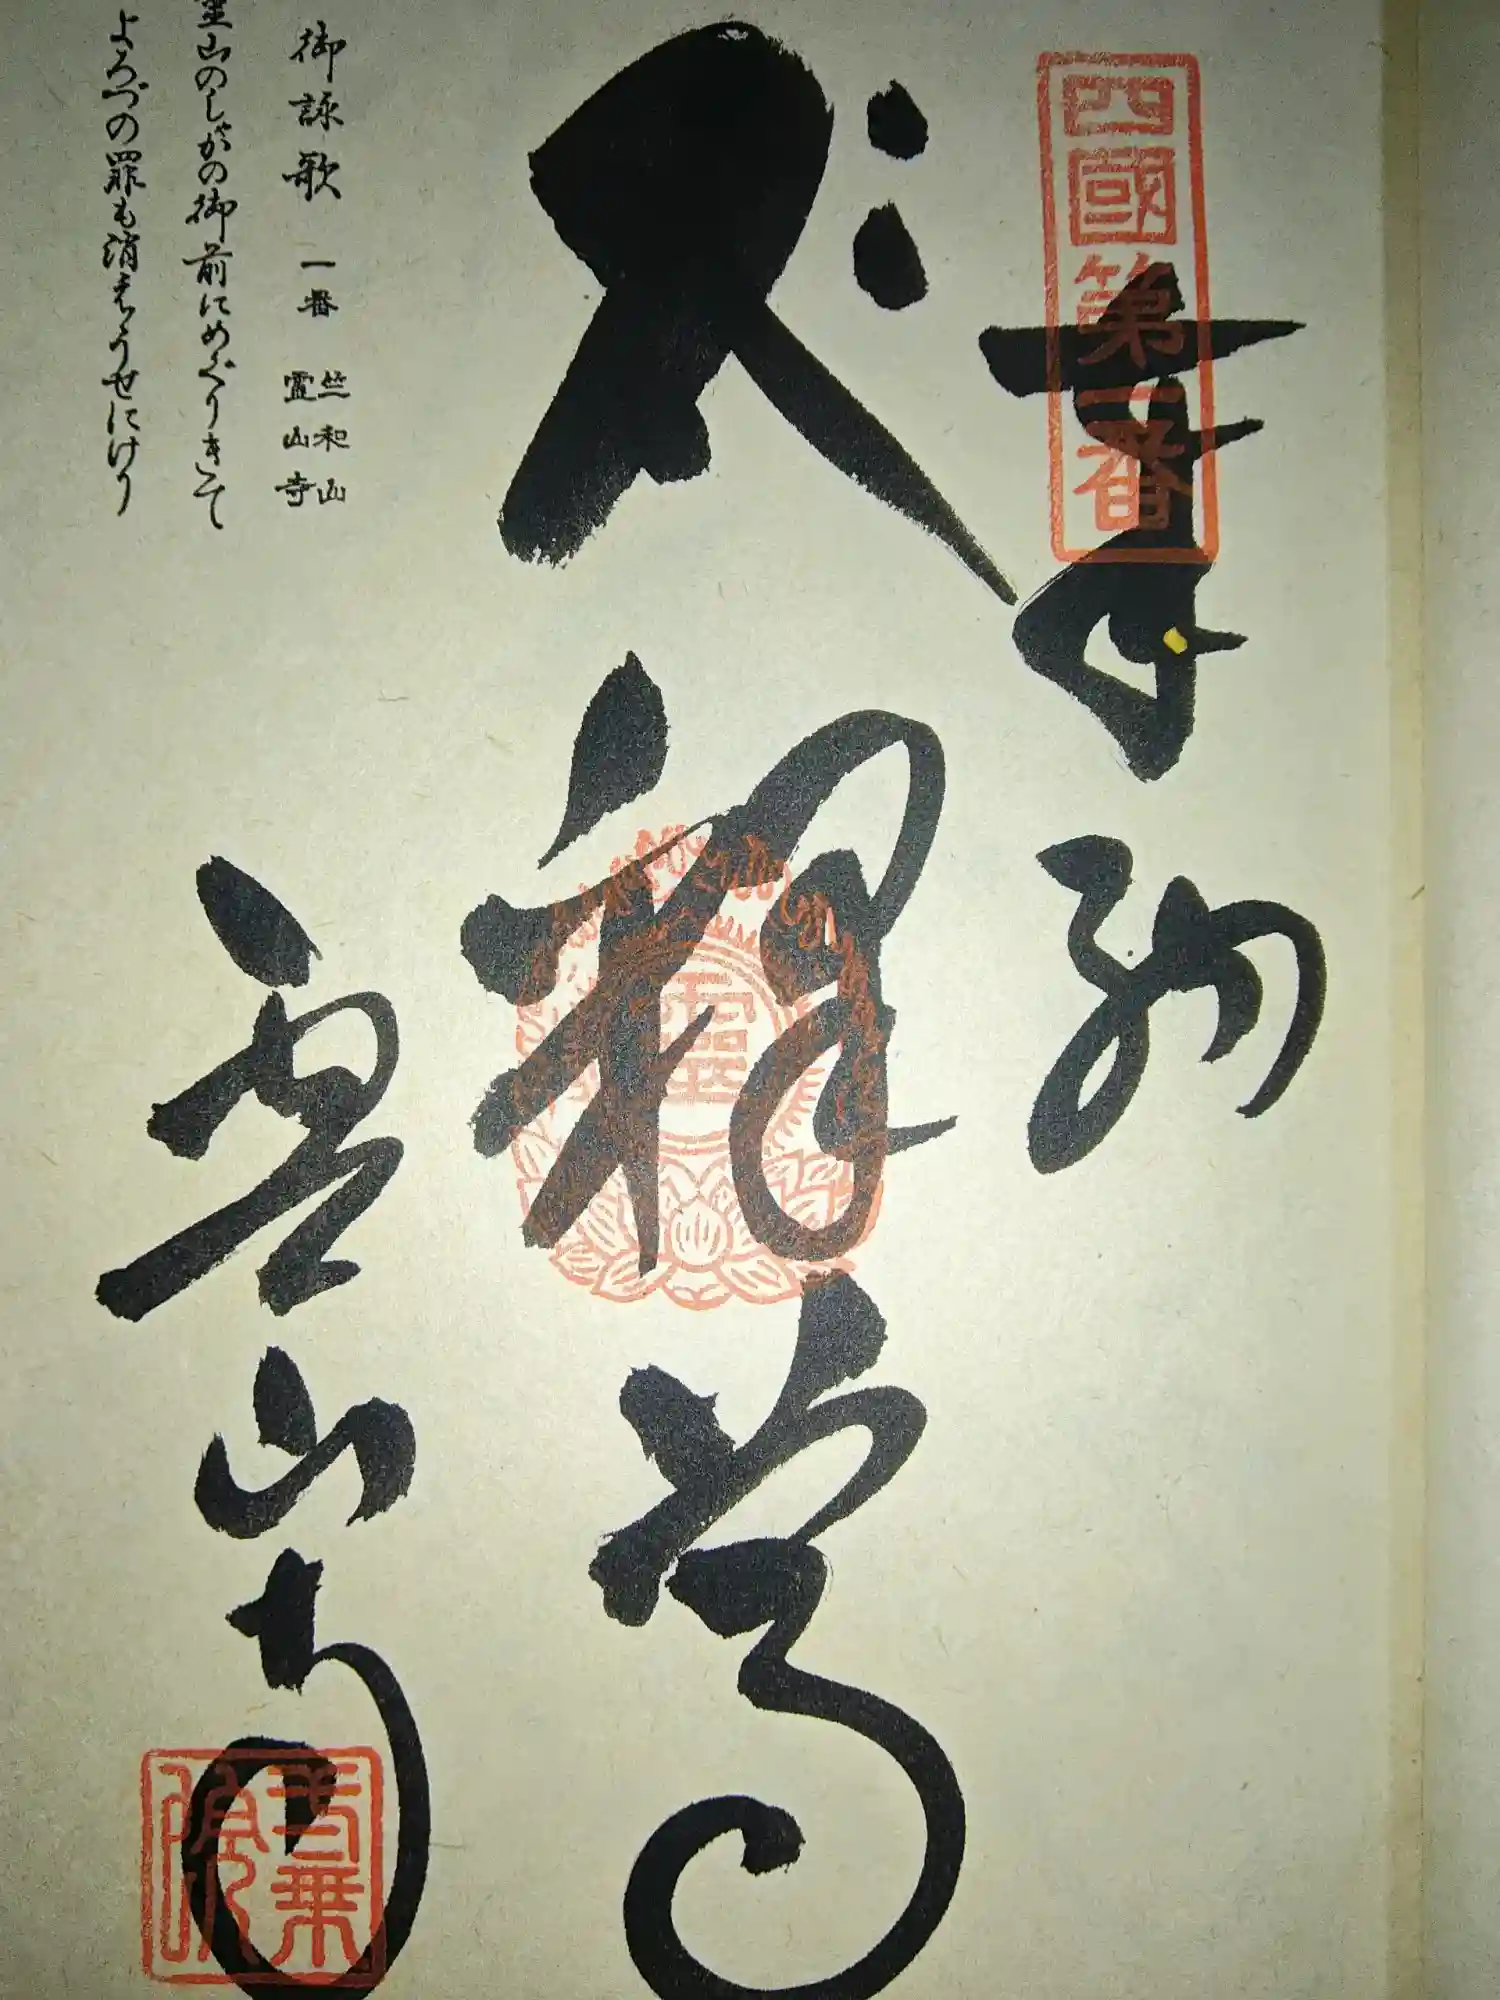 四國第一番
奉納
釋尊
霊山寺
靈
御詠歌 一番 竺和山 霊山寺
霊山のしゃかの御前にめぐりきて
よろづの罪も消えうせにけり